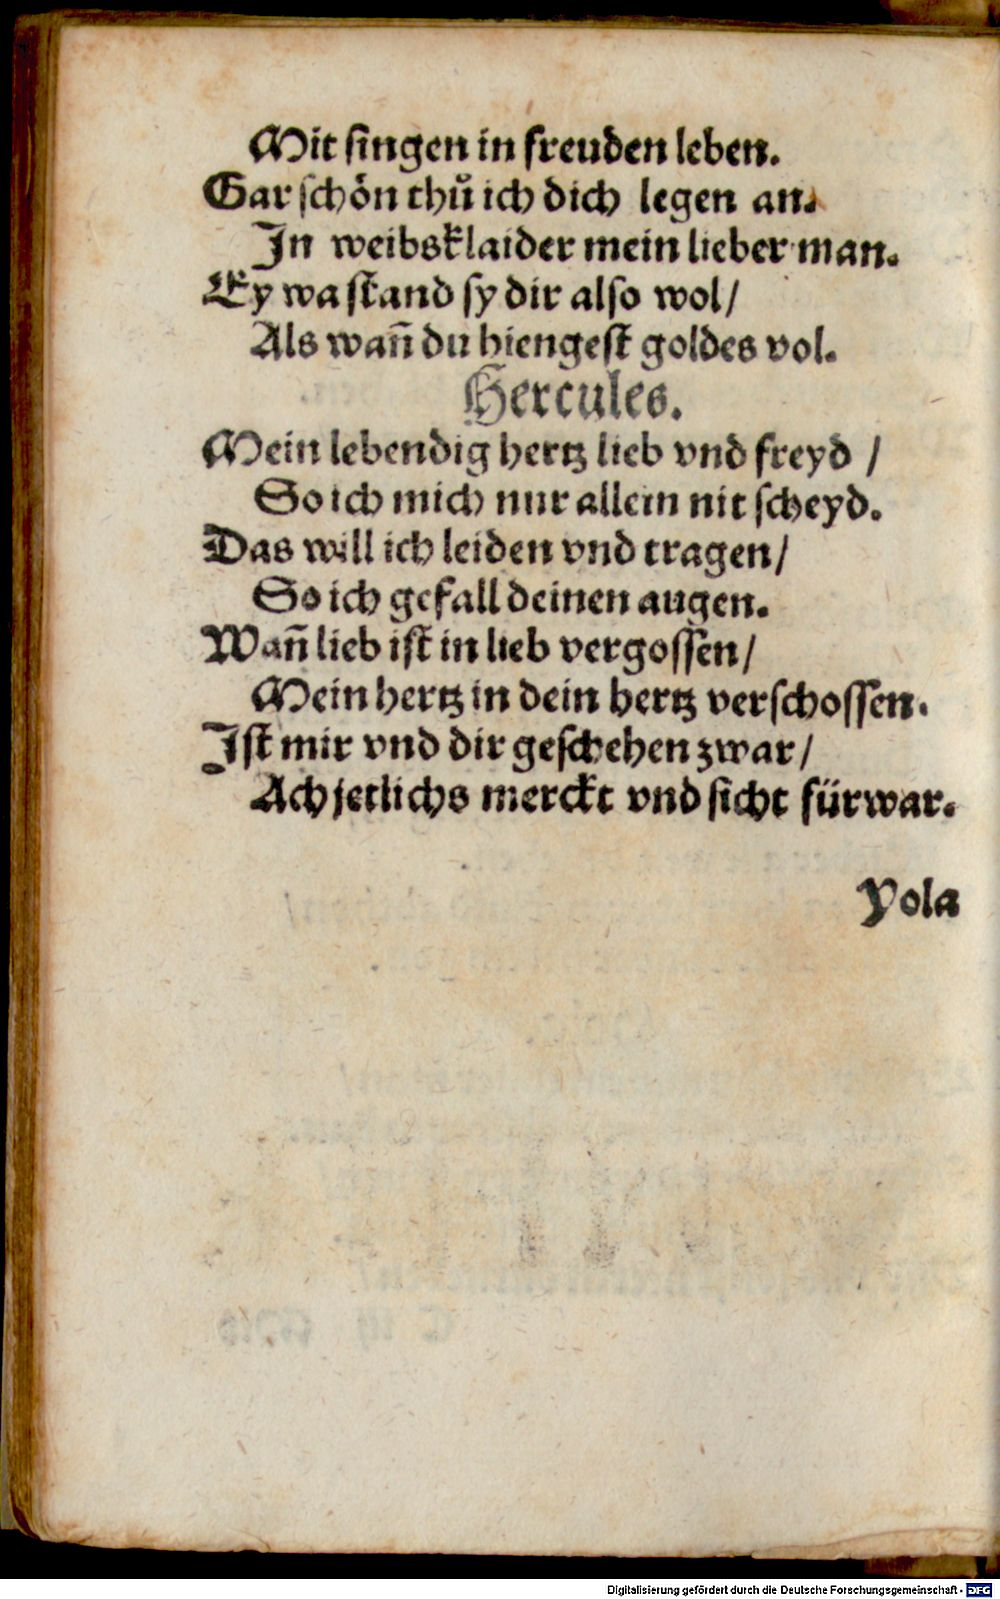 Mit ſingen in freuden leben.
Gar ſchön thuͦ ich dich legen an.
In weibsklaider mein lieber man.
Ey wa ſtand ſy dir alſo wol/
Als wañ du hiengeſt goldes vol.
Hercules.
Mein lebendig hertz lieb vnd freyd /
So ich mich nur allein nit ſcheyd.
Das will ich leiden vnd tragen/
So ich gefall deinen augen.
Wañ lieb iſt in lieb vergoſſen/
Mein hertz in dein hertz verſchoſſen.
Iſt mir vnd dir geſchehen zwar/
Ach jetlichs merckt vnd ſicht fürwar.
Yola
Digitalisierung gefördert durch die Deutsche Forschungsgemeinschaft - DFG